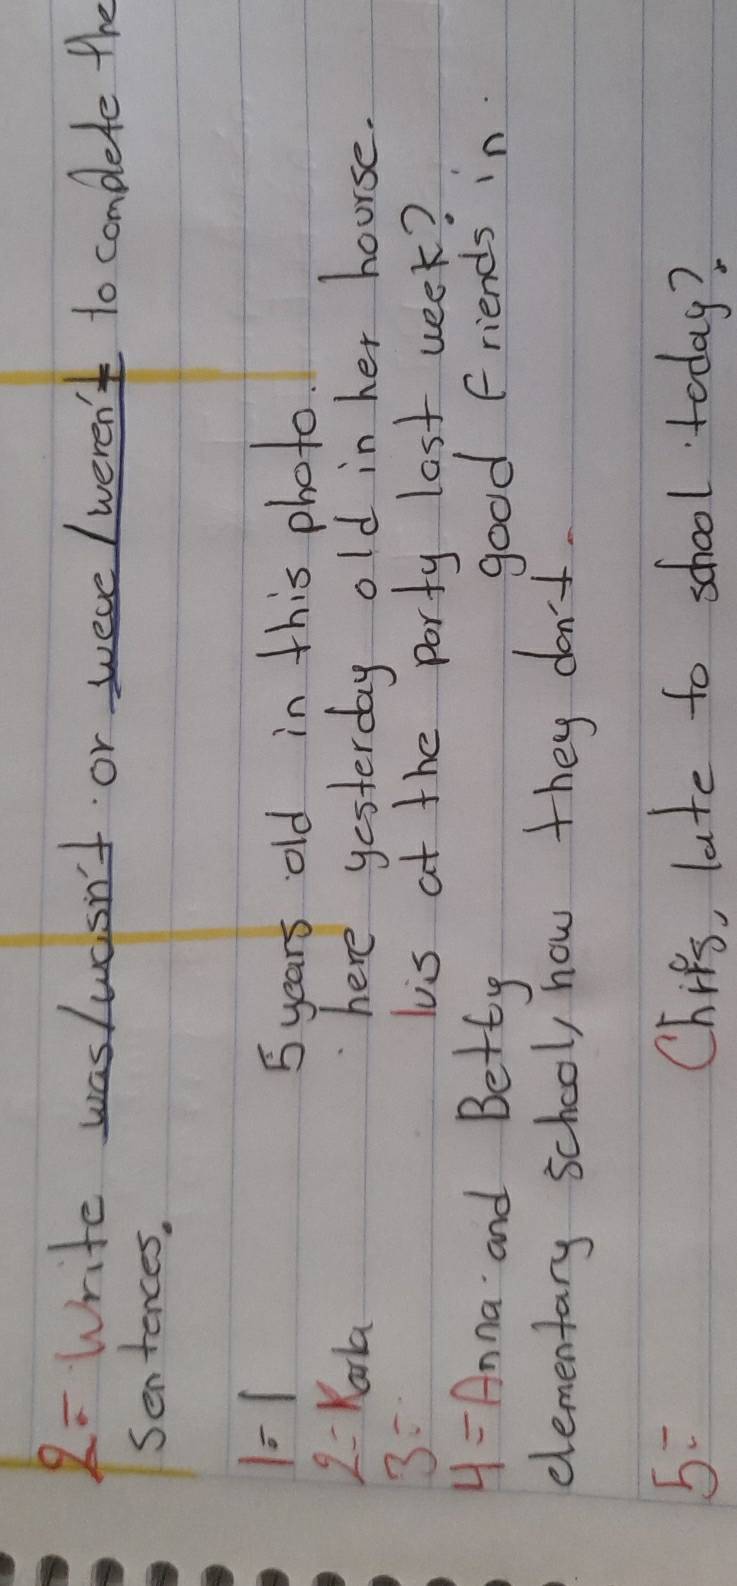 2= Write was/wasn't or were/weren't to complete the
sentences.
1= I 5 years old in this photo.
2= Karla here yesterday old in her hourse.
3= lvis at the party last week?
4= Anna and Betty good friends in
elementary school, how they don't.
5= Chirs, late to school today?